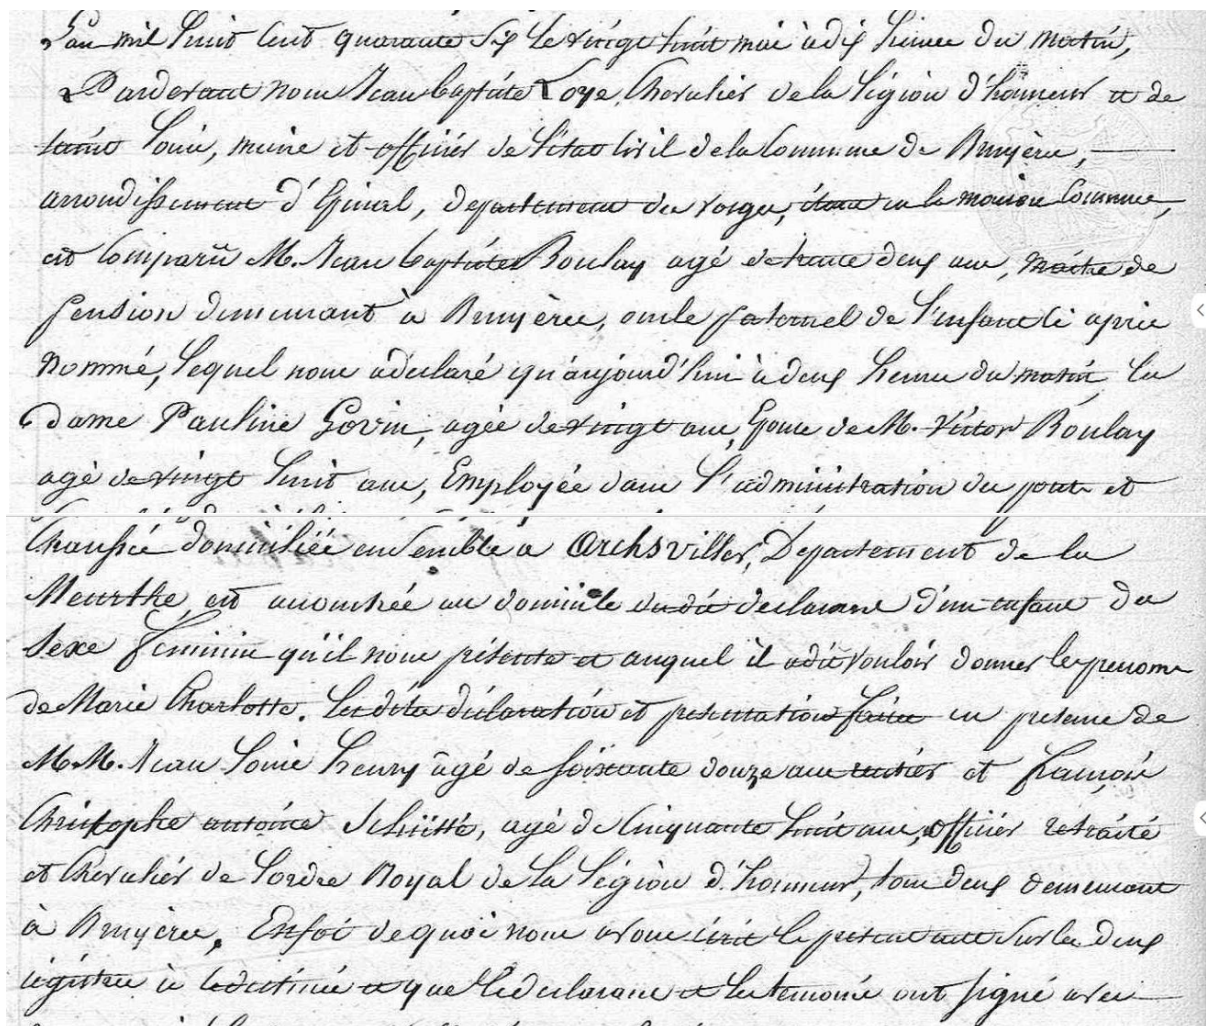 L'an mil huit cent quarante six le vingt huit mai à dix heures du matin,
Pardevant nous Jean Baptiste Loye, Chevalier de la Légion d'honneur et de
Saint Louis, maire et officier de l'état Civil de la Commune de Bruyères,
arrondissement d'Epinal, departement des Vosges, étant en la maison Commune,
est Comparû M. Jean baptiste Boulay agé de trente deux ans, Maître de
pension demeurant à Bruyères, oncle paternel de l'enfant ci après
nommé, lequel nous a déclaré qu'aujourd'hui à deux heures du matin, la
dame Pauline Govin, agée de vingt ans, Epouse de M. Victor Boulay
agé de vingt huit ans, Employée dans l'administration des ponts et
Chaussée domiciliée ensemble à Archsviller, Departement de la
Meurthe, est accouchée au domicile du dit declarant d'un enfant du
Sexe féminin qu'il nous présente et auquel il a dit vouloir donner les prenoms
de Marie Charlotte. Les dites déclaration et presentation faites en presence de
M.M. Jean Louis henry âgé de soixante douze ans rentier et françois
Christophe antoine Schütté, agé de Cinquante huit ans, officier retraité
et Chevalier de l'ordre Royal de la Légion d'honneur, tous deux demeurant
à Bruyères. En foi de quoi nous avons écrit le présent acte sur les deux
régistres à ce destinés et que le declarant et les temoins ont signé avec